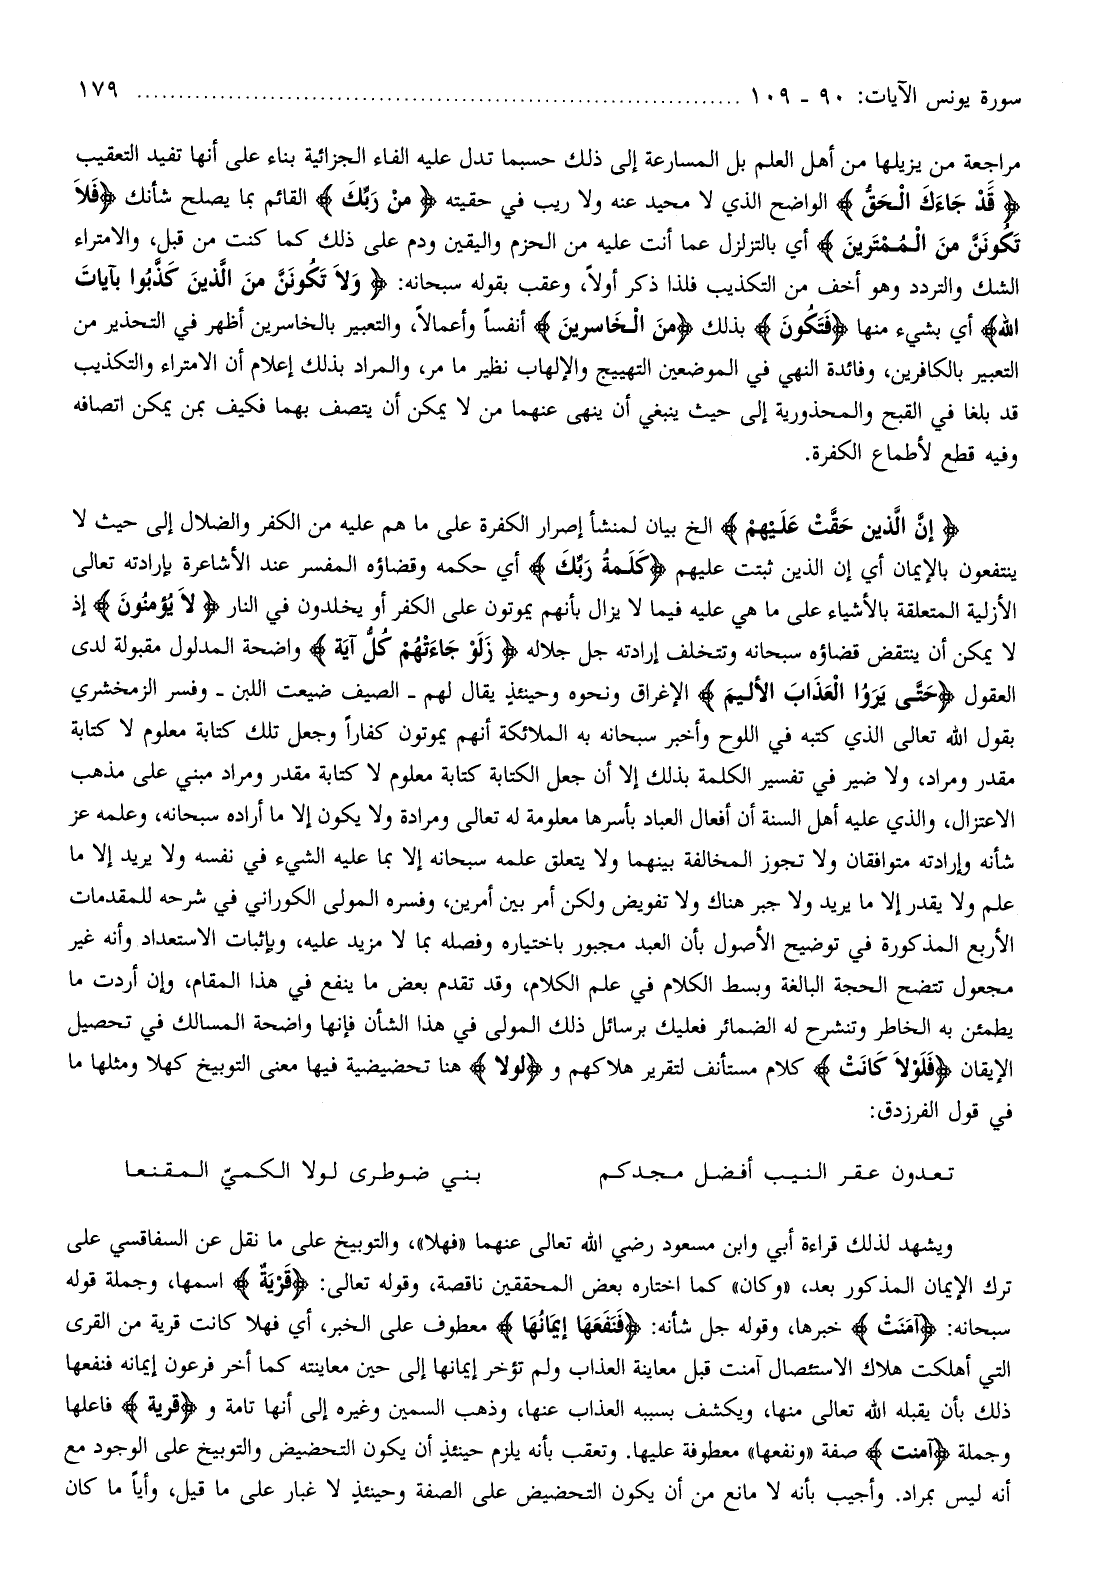 سورة يونس الآيات: ٩٠ ـ ١٠٩ ........................................................................ ١٧٩
مراجعة من يزيلها من أهل العلم بل المسارعة إلى ذلك حسبما تدل عليه الفاء الجزائية بناء على أنها تفيد التعقيب
﴿ قَدْ جَاءَكَ الْحَقُّ ﴾ الواضح الذي لا محيد عنه ولا ريب في حقيته ﴿ منْ رَبِّكَ ﴾ القائم بما يصلح شأنك ﴿فَلاَ
تَكُونَنَّ منَ الْمُمْتَرينَ ﴾ أي بالتزلزل عما أنت عليه من الحزم واليقين ودم على ذلك كما كنت من قبل، والامتراء
الشك والتردد وهو أخف من التكذيب فلذا ذكر أولاً، وعقب بقوله سبحانه: ﴿ وَلاَ تَكُونَنَّ منَ الَّذينَ كَذَّبُوا بآيَاتَ
الله﴾ أي بشيء منها ﴿فَتَكُونَ ﴾ بذلك ﴿منَ الْخَاسرينَ ﴾ أنفساً وأعمالاً، والتعبير بالخاسرين أظهر في التحذير من
التعبير بالكافرين، وفائدة النهي في الموضعين التهييج والإلهاب نظير ما مر، والمراد بذلك إعلام أن الامتراء والتكذيب
قد بلغا في القبح والمحذورية إلى حيث ينبغي أن ينهى عنهما من لا يمكن أن يتصف بهما فكيف بمن يمكن اتصافه
وفيه قطع لأطماع الكفرة.
﴿ إنَّ الَّذين حَقَّتْ عَلَيْهمْ ﴾ الخ بيان لمنشأ إصرار الكفرة على ما هم عليه من الكفر والضلال إلى حيث لا
ينتفعون بالإيمان أي إن الذين ثبتت عليهم ﴿كَلَمةُ رَبِّكَ ﴾ أي حكمه وقضاؤه المفسر عند الأشاعرة بإرادته تعالى
الأزلية المتعلقة بالأشياء على ما هي عليه فيما لا يزال بأنهم يموتون على الكفر أو يخلدون في النار ﴿ لاَ يُؤمنُونَ ﴾ إذ
لا يمكن أن ينتقض قضاؤه سبحانه وتتخلف إرادته جل جلاله ﴿ زَلَوْ جَاءَتْهُمْ كُلُّ آيَة ﴾ واضحة المدلول مقبولة لدى
العقول ﴿حَتَّى يَرَوُا الْعَذَابَ الأَليمَ ﴾ الإغراق ونحوه وحينئذٍ يقال لهم ـ الصيف ضيعت اللبن ـ وفسر الزمخشري
بقول الله تعالى الذي كتبه في اللوح وأخبر سبحانه به الملائكة أنهم يموتون كفاراً وجعل تلك كتابة معلوم لا كتابة
مقدر ومراد، ولا ضير في تفسير الكلمة بذلك إلا أن جعل الكتابة كتابة معلوم لا كتابة مقدر ومراد مبني على مذهب
الاعتزال، والذي عليه أهل السنة أن أفعال العباد بأسرها معلومة له تعالى ومرادة ولا يكون إلا ما أراده سبحانه، وعلمه عز
شأنه وإرادته متوافقان ولا تجوز المخالفة بينهما ولا يتعلق علمه سبحانه إلا بما عليه الشيء في نفسه ولا يريد إلا ما
علم ولا يقدر إلا ما يريد ولا جبر هناك ولا تفويض ولكن أمر بين أمرين، وفسره المولى الكوراني في شرحه للمقدمات
الأربع المذكورة في توضيح الأصول بأن العبد مجبور باختياره وفصله بما لا مزيد عليه، وبإثبات الاستعداد وأنه غير
مجعول تتضح الحجة البالغة وبسط الكلام في علم الكلام، وقد تقدم بعض ما ينفع في هذا المقام، وإن أردت ما
يطمئن به الخاطر وتنشرح له الضمائر فعليك برسائل ذلك المولى في هذا الشأن فإنها واضحة المسالك في تحصيل
الإيقان ﴿فَلَوْلاَ كَانَتْ ﴾ كلام مستأنف لتقرير هلاكهم و ﴿لولا ﴾ هنا تحضيضية فيها معنى التوبيخ كهلا ومثلها ما
في قول الفرزدق:
تعدون عقر النيب أفضل مجدكم بني ضوطرى لولا الكميّ المقنعا
ويشهد لذلك قراءة أبي وابن مسعود رضي الله تعالى عنهما «فهلا»، والتوبيخ على ما نقل عن السفاقسي على
ترك الإيمان المذكور بعد، «وكان» كما اختاره بعض المحققين ناقصة، وقوله تعالى: ﴿قَرْيَةٌ ﴾ اسمها، وجملة قوله
سبحانه: ﴿آمَنَتْ ﴾ خبرها، وقوله جل شأنه: ﴿فَنَفَعَهَا إيمَانُهَا ﴾ معطوف على الخبر، أي فهلا كانت قرية من القرى
التي أهلكت هلاك الاستئصال آمنت قبل معاينة العذاب ولم تؤخر إيمانها إلى حين معاينته كما أخر فرعون إيمانه فنفعها
ذلك بأن يقبله الله تعالى منها، ويكشف بسببه العذاب عنها، وذهب السمين وغيره إلى أنها تامة و ﴿قرية ﴾ فاعلها
وجملة ﴿آمنت ﴾ صفة «ونفعها» معطوفة عليها. وتعقب بأنه يلزم حينئذٍ أن يكون التحضيض والتوبيخ على الوجود مع
أنه ليس بمراد. وأجيب بأنه لا مانع من أن يكون التحضيض على الصفة وحينئذٍ لا غبار على ما قيل، وأياً ما كان